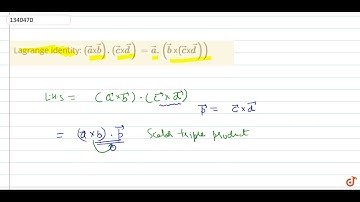 1340470
Lagrange identity: (a⃗×b⃗). (c⃗×d⃗) = a⃗. (b⃗×(c⃗×d⃗))
LHS = (a⃗×b⃗)·(c⃗×d⃗)
p⃗ = c⃗×d⃗
= (a×b)·p⃗ Scalar triple product